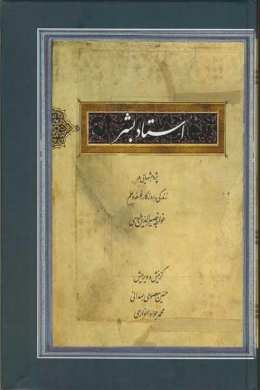 استاد بشر
پژوهشهایی در
زندگی، روزگار، فلسفه و علم
خواجه نصیرالدین طوسی
گزینش و ویرایش
حسین معصومی همدانی
محمد جواد انواری